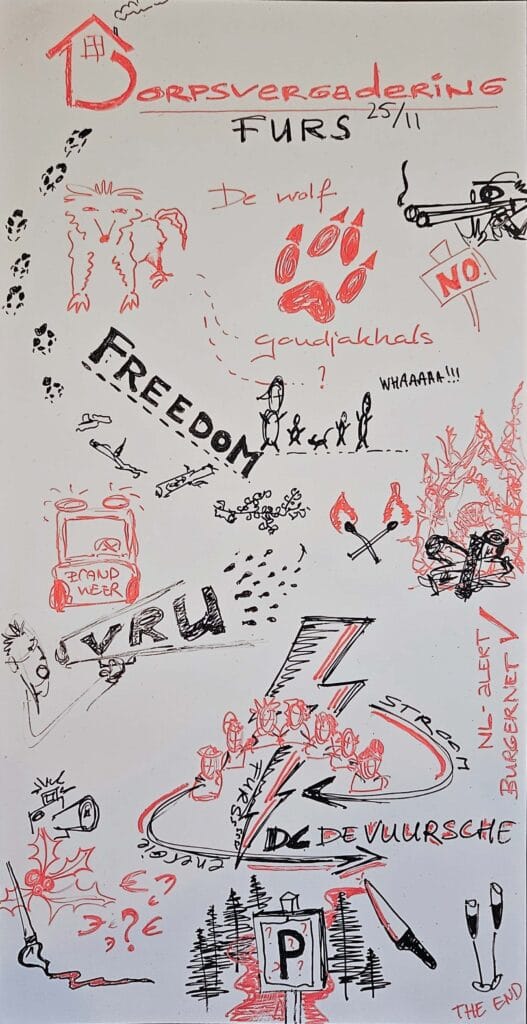 DORPSVERGADERING
FURS 25/11
De wolf
NO.
goudjakhals
?
WHAAAAA!!!
FREEDOM
BRAND
WEER
VRU
NL-alert
BURGERNET
STROOM
FURSE
energie
DE VUURSCHE
€?
€?€
? ?
P
THE END